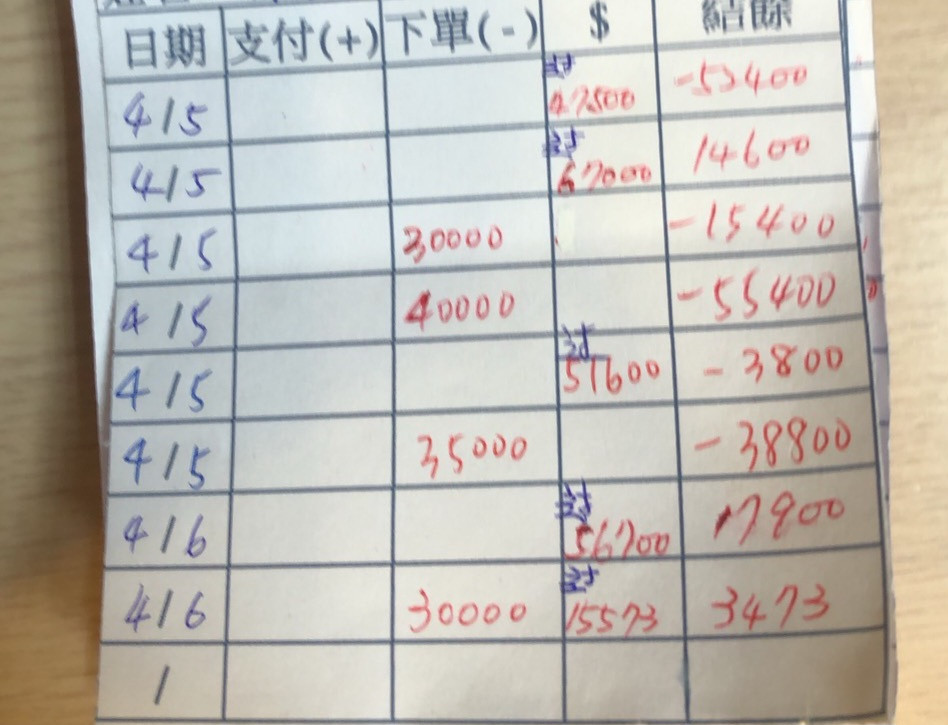 日期 支付(+) 下單(-) $ 結餘
4/5 討 47500 -52400
4/5 討 67000 14600
4/5 30000 -15400
4/5 40000 -55400
4/5 討 51600 -3800
4/5 35000 -38800
4/6 討 56700 17900
4/6 30000 討 15573 3473
/